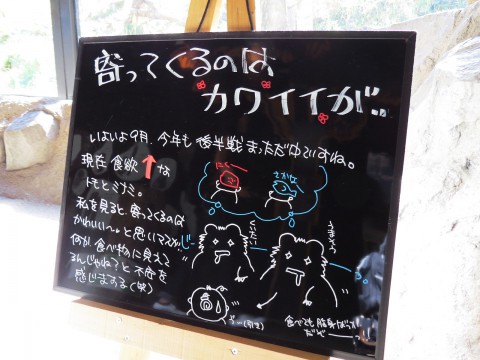 寄ってくるのは
カワイイが…
いよいよ9月、今年も後半戦まっただ中ですね。
現在食欲↑な
トモとミナミ。
私を見ると、寄ってくるのは
かわいい〜♡と思いマスが、
何か食べ物に見えて
るんじゃね?と不安を
感じまする(笑)
にく
さかな
じー
くいたい
うまそう
食べても脂身ばっか
だぞー